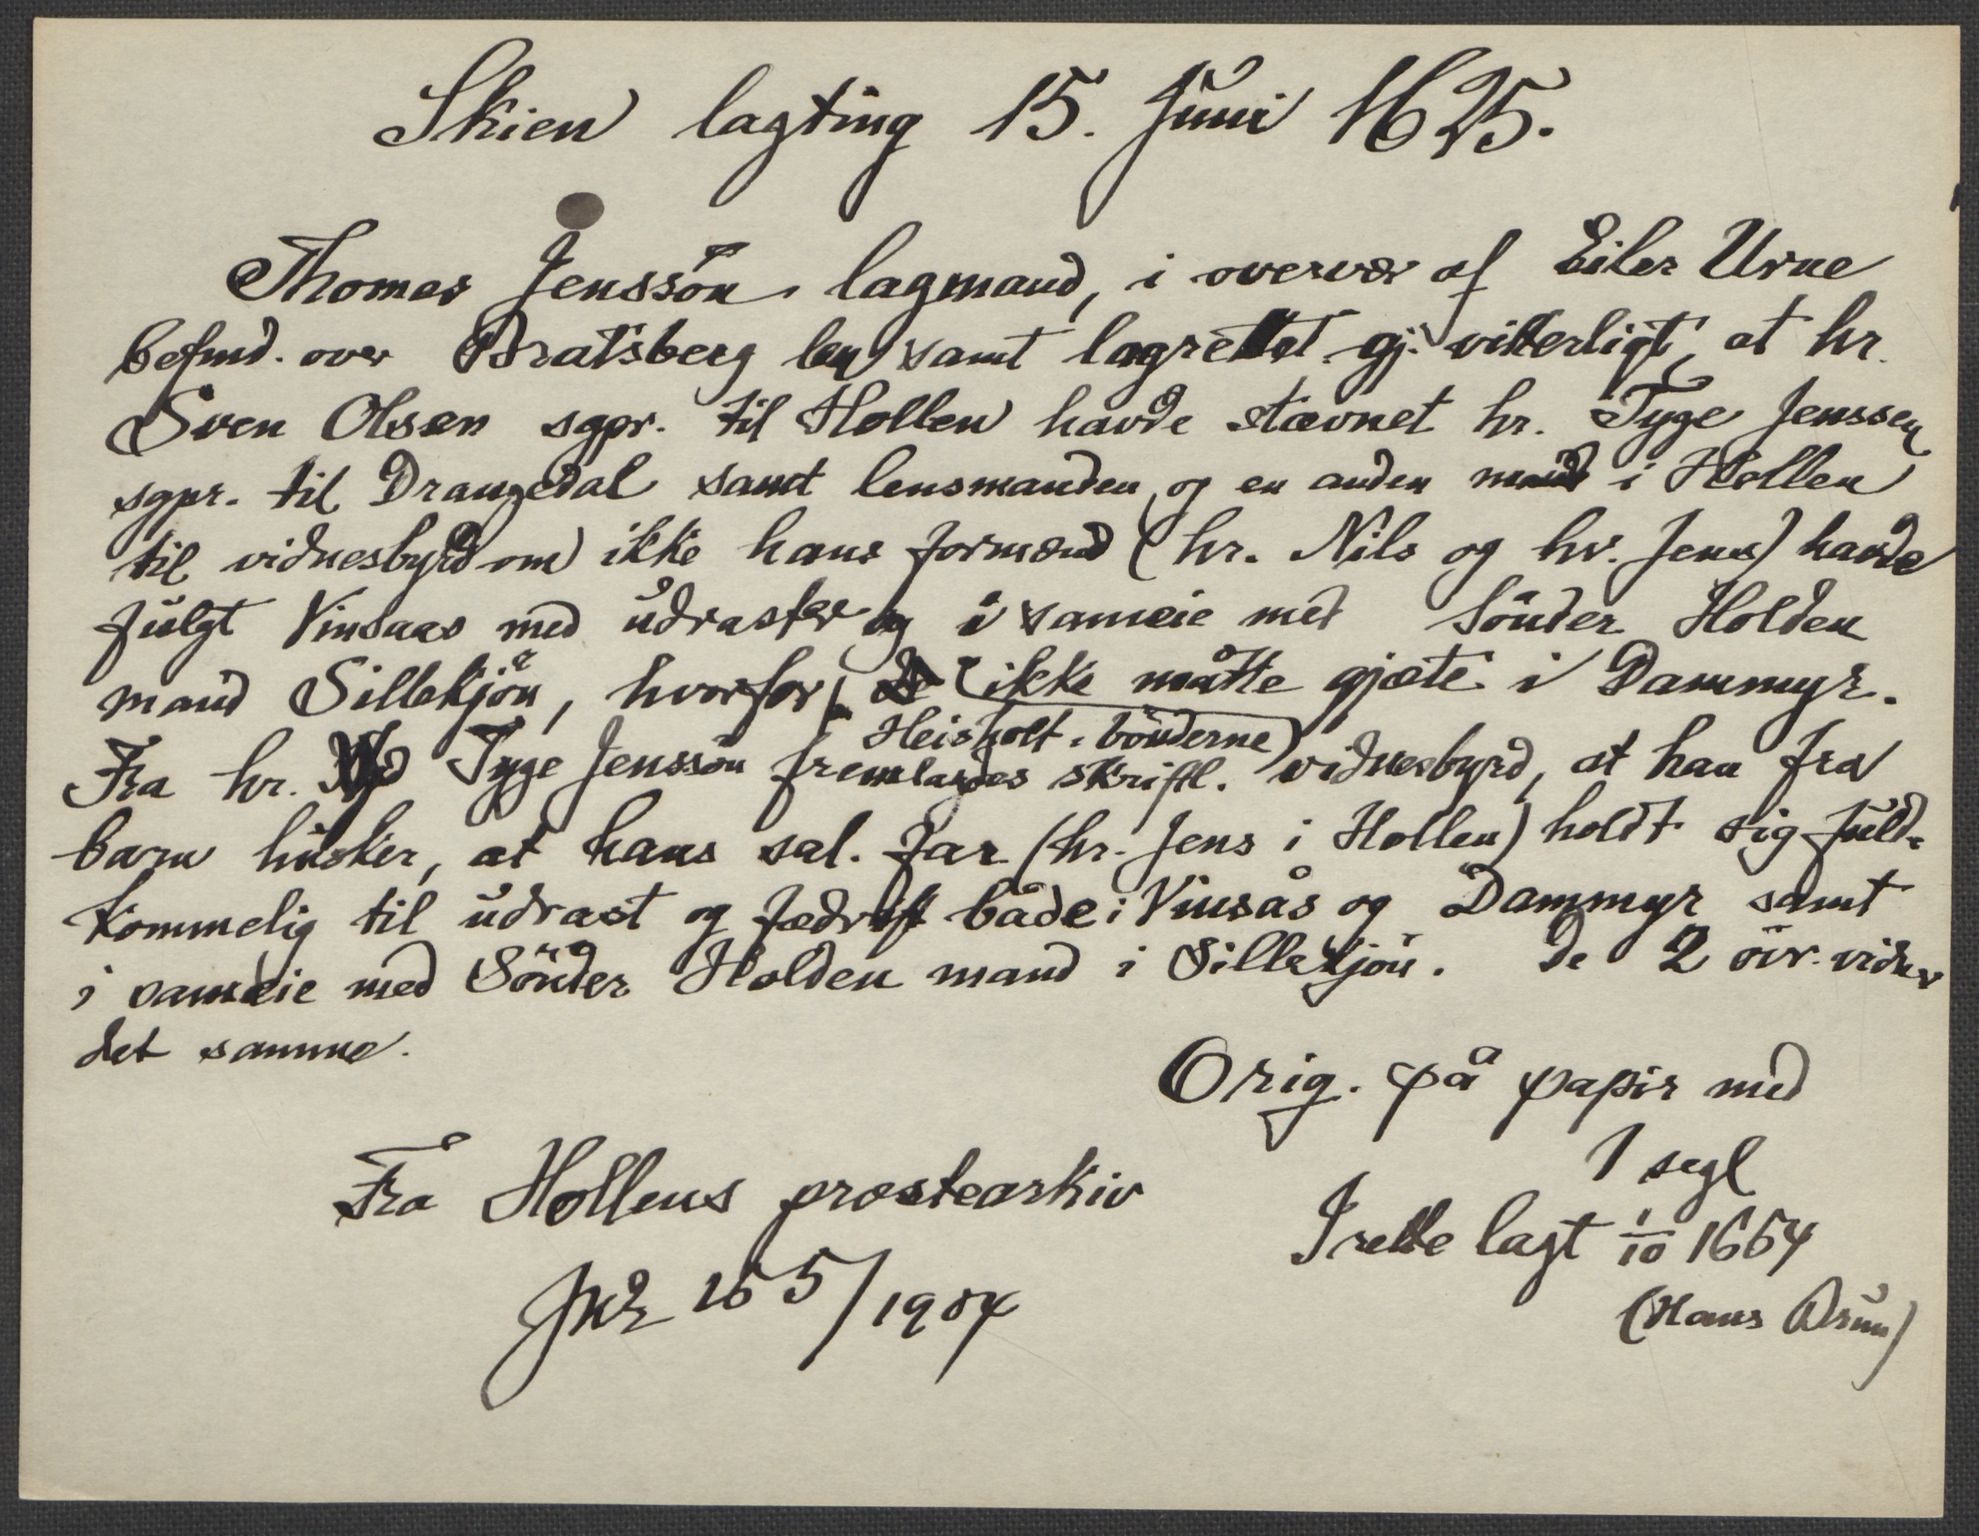 Skien lagting 15. Juni 1625.
Thomas Jenssön lagmand, i overvær af Eiler Urne
befmd. over Bratsberg len samt lagrettet gj. vitterligt, at hr.
Sven Olsen sgpr. til Hollen havde stævnet hr. Tyge Jenssen
sgpr. til Drangedal samt lensmanden og en anden mand i Hollen
til vidnesbyrd om ikke hans formænd (hr. Nils og hr. Jens) havde
fulgt Vinsaas med udraster og i sameie med Sönder Holden
mand Sillekjön, hvorfor Heisholt-bönderne ikke måtte gjæte i Dammyr.
Fra hr. Tyge Jenssön fremlagdes skriftl. vidnesbyrd, at han fra
barn husker, at hans sal. far (hr. Jens i Hollen) holdt sig fuld-
kommelig til udrast og fædrift både i Vinsås og Dammyr samt
i sameie med Sönder Holden mand i Sillekjön. De 2 övr. vidner
det samme.
Orig. på papir med
1 segl
Fra Hollens præstearkiv
I rette lagt 1/10 1664
Jnk 155/1904
(Hans )